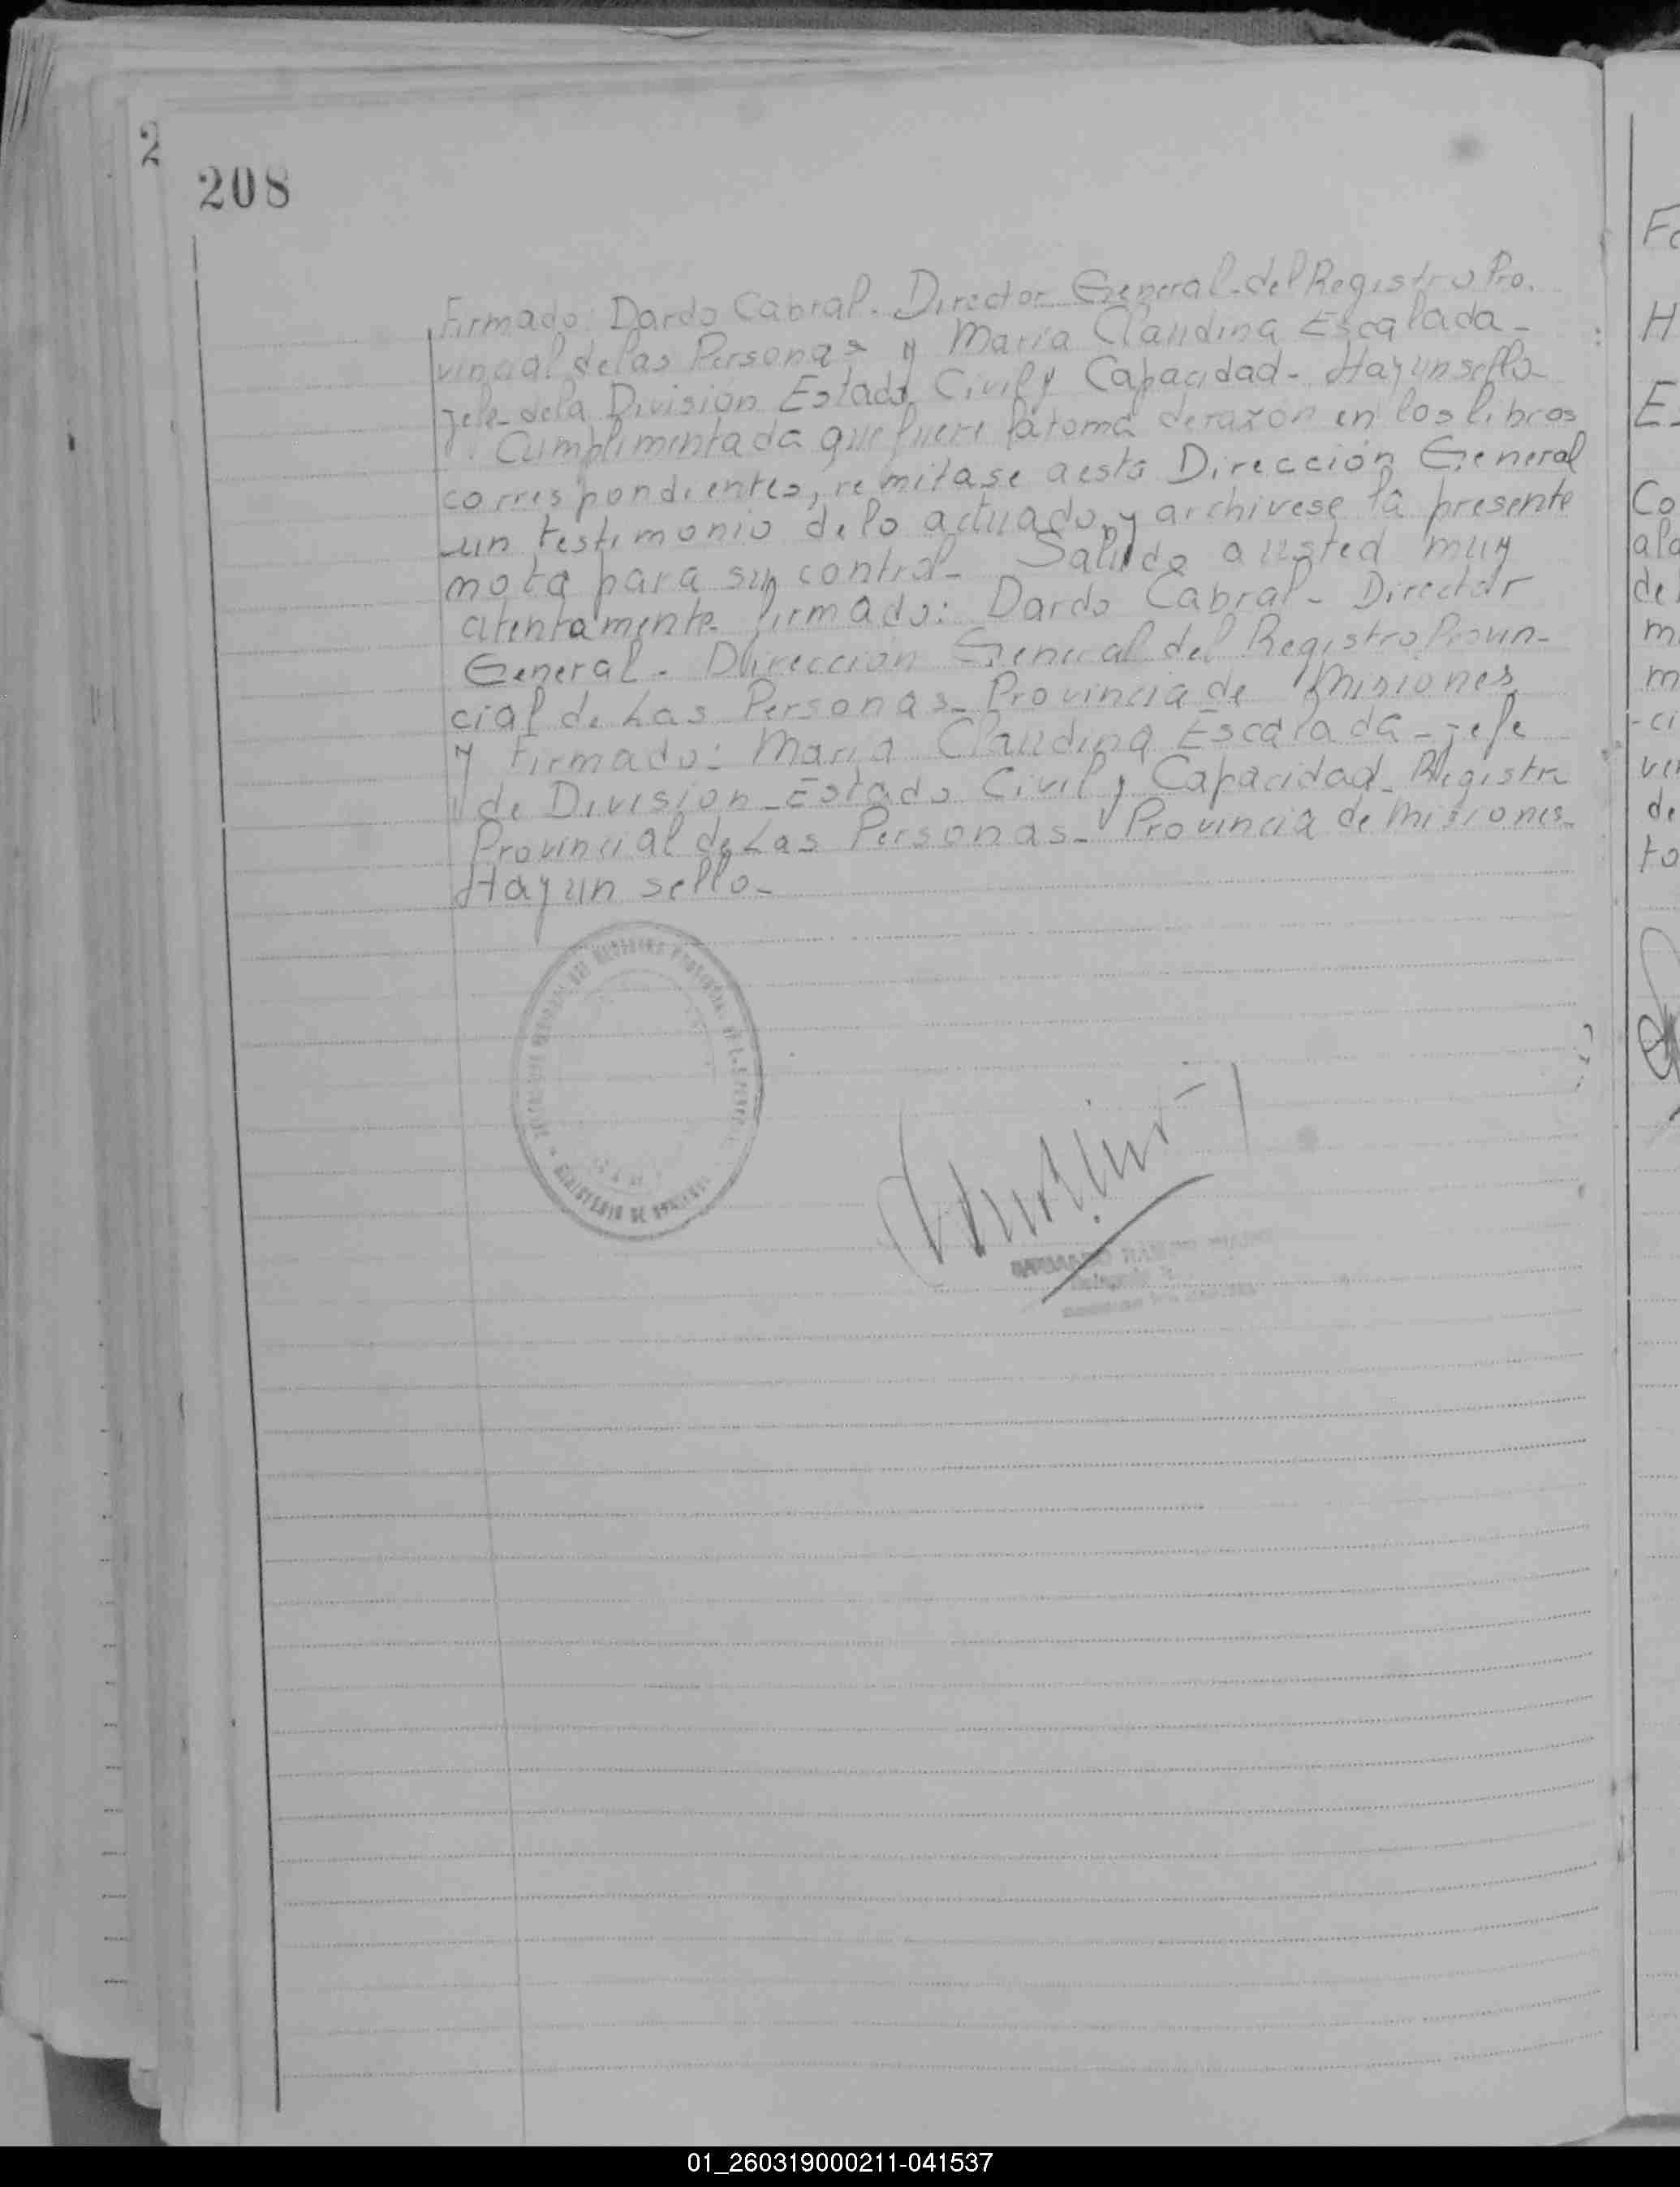 2
208
Firmado: Dardo Cabral. Director General del Registro Pro.
vincial de las Personas y María Claudina Escalada-
Jefe de la División Estado Civil y Capacidad- Hay un sello-
Cumplimentada que fuere la toma de razón en los libros
correspondientes, remitase a esta Dirección General
un testimonio de lo actuado y archivese la presente
nota para su control- Saludo a usted muy
atentamente firmado: Dardo Cabral- Director
General- Dirección General del Registro Provin-
cial de Las Personas- Provincia de Misiones
y Firmado: María Claudina Escalada- Jefe
de División Estado Civil y Capacidad- Registro
Provincial de Las Personas- Provincia de Misiones-
Hay un sello-
MINISTERIO DE
Fo
H
Es
Co
ala
de
m
m
-ci
ver
de
to
01_260319000211-041537